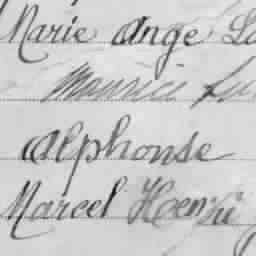 Marie Ange
Maurice
Alphonse
Marcel Henri